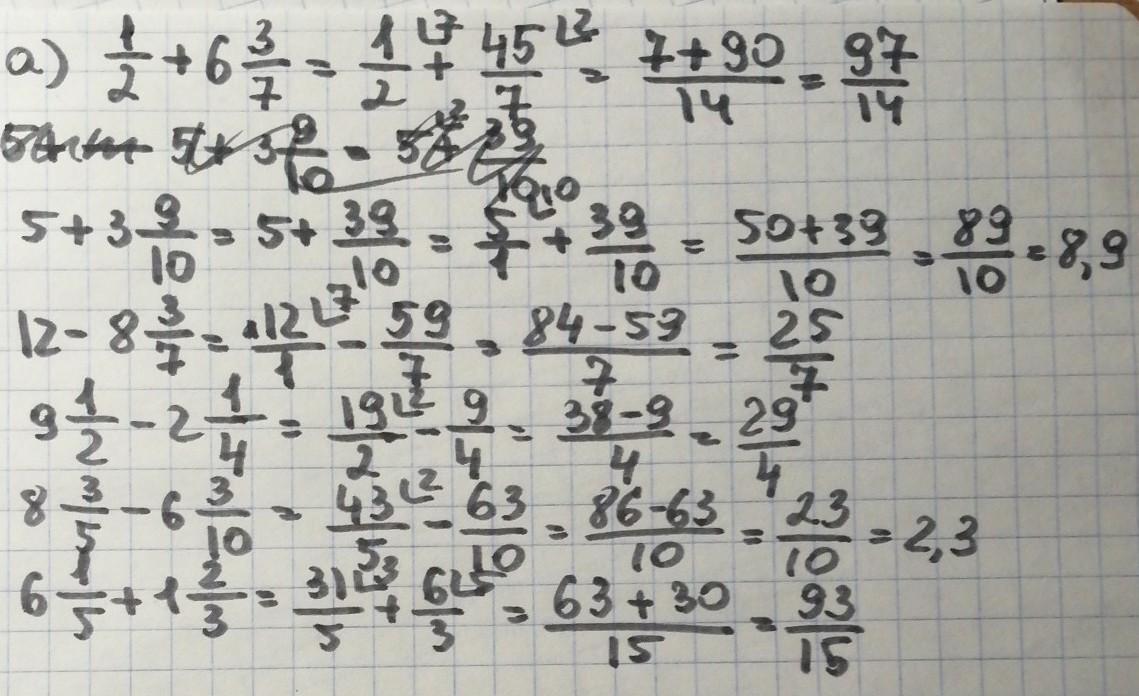 a) 1/2 + 6 3/7 = 1/2 ⌊7 + 45/7 ⌊2 = 7+90/14 = 97/14
5 + 3 9/10 = 5 + 39/10
5 + 3 9/10 = 5 + 39/10 = 5/1 ⌊10 + 39/10 = 50+39/10 = 89/10 = 8,9
12 - 8 3/7 = 12/1 ⌊7 - 59/7 = 84-59/7 = 25/7
9 1/2 - 2 1/4 = 19/2 ⌊2 - 9/4 = 38-9/4 = 29/4
8 3/5 - 6 3/10 = 43/5 ⌊2 - 63/10 = 86-63/10 = 23/10 = 2,3
6 1/5 + 1 2/3 = 31/5 ⌊3 + 6/3 ⌊5 = 63+30/15 = 93/15